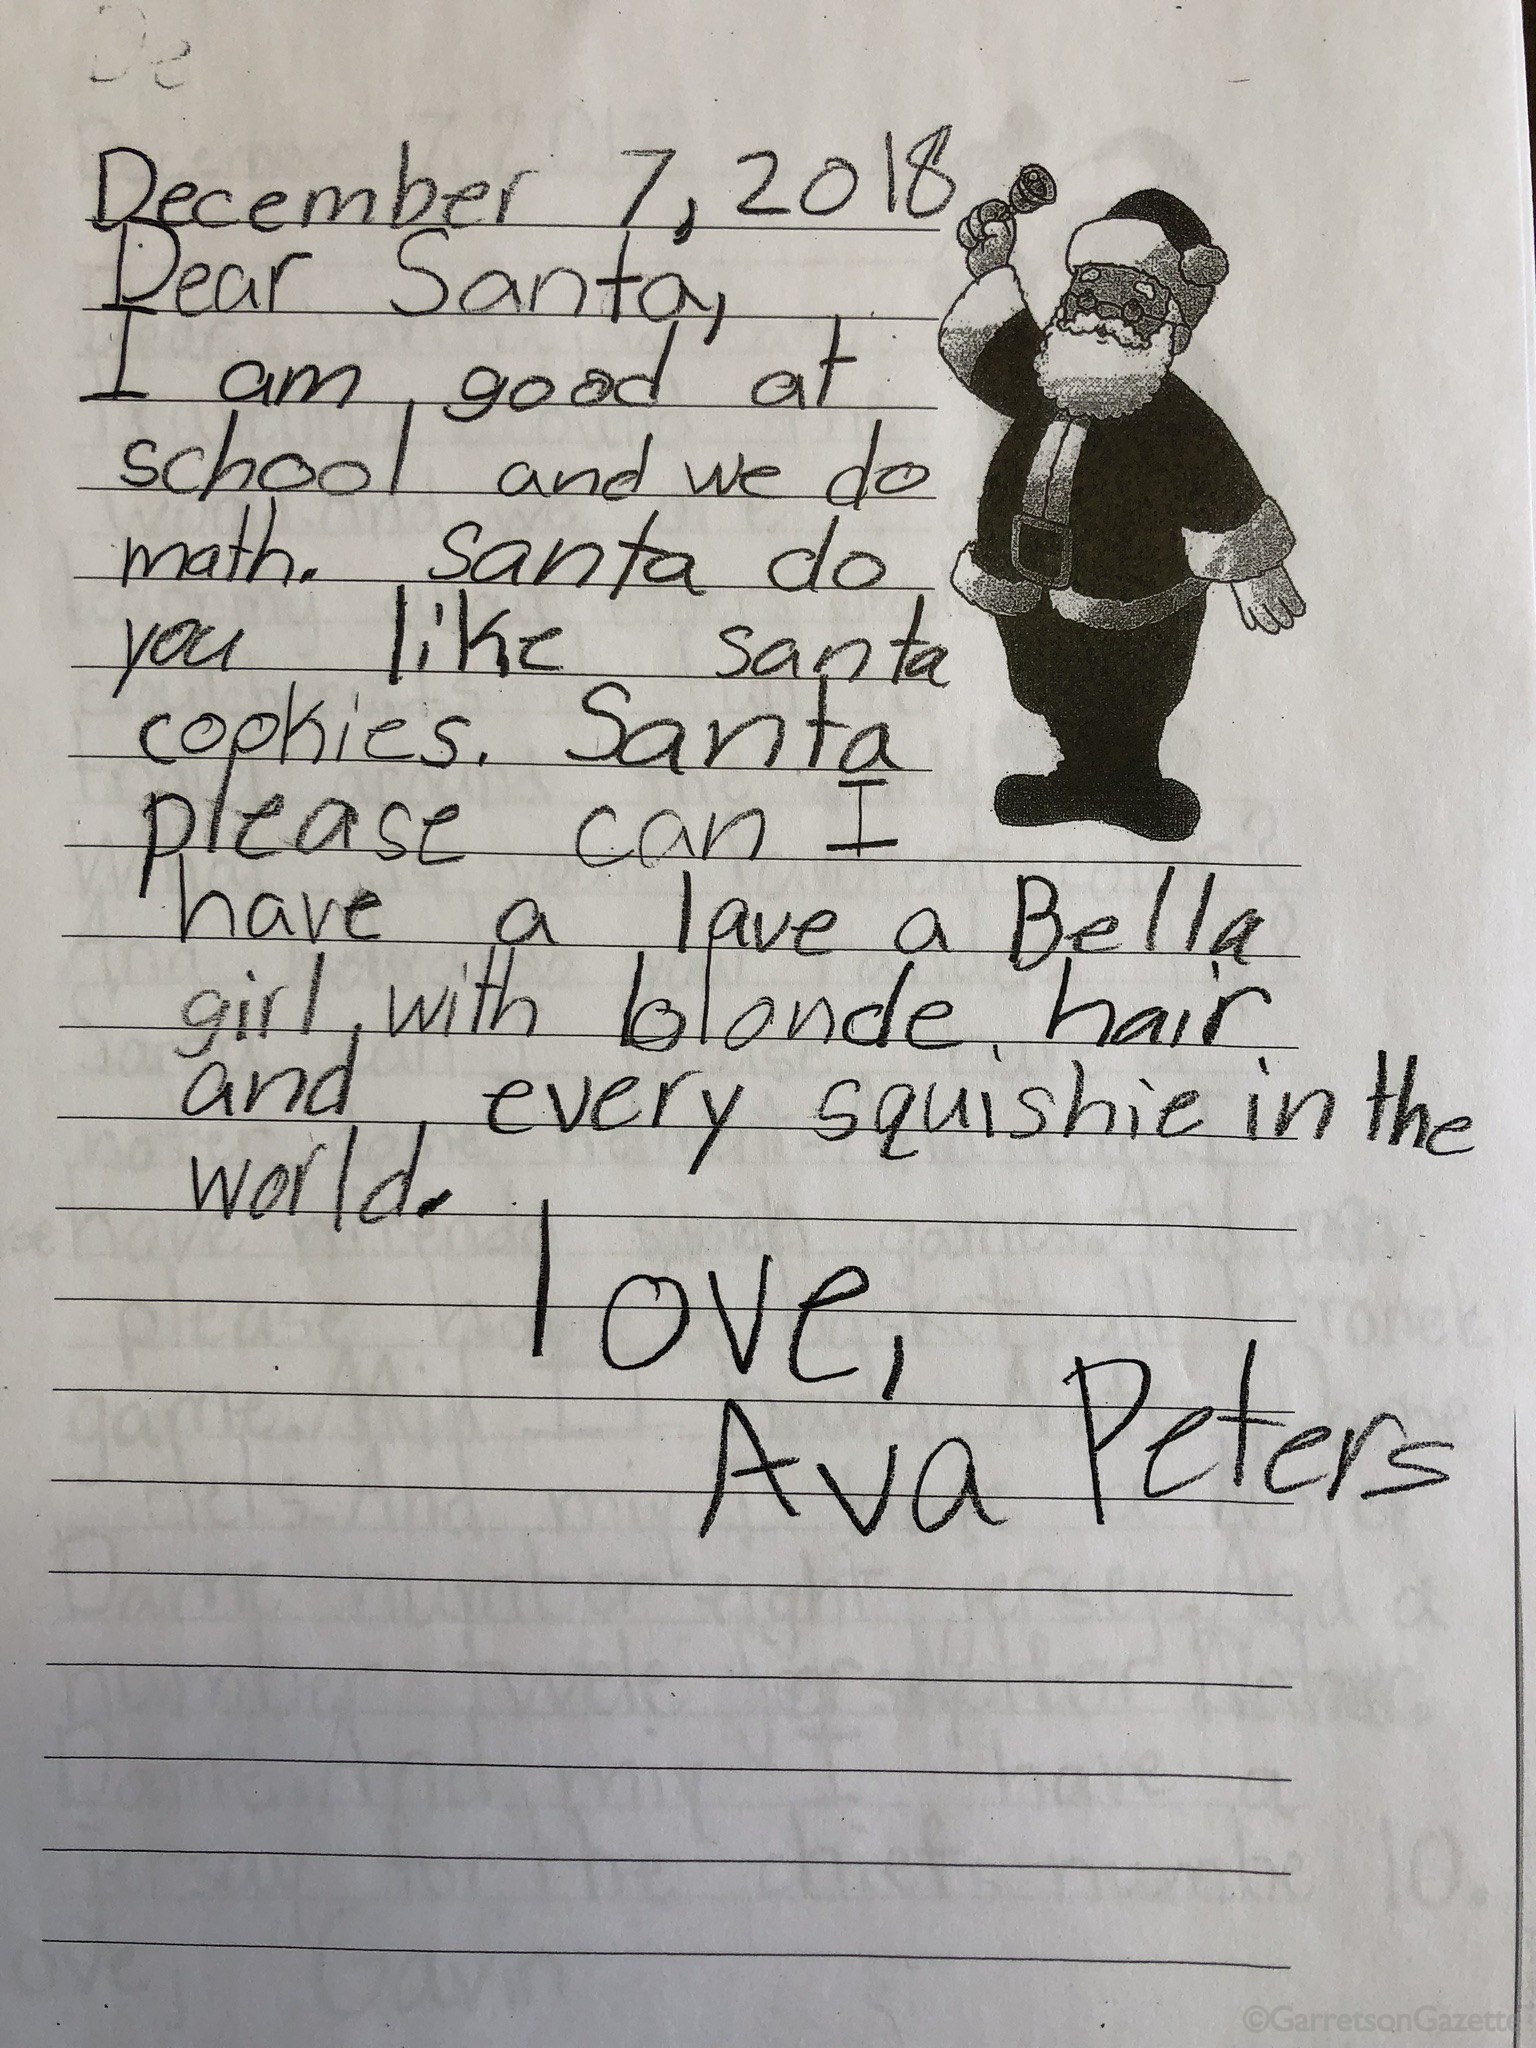 De
December 7, 2018
Dear Santa,
I am good at
school and we do
math. Santa do
you like santa
cookies. Santa
please can I
have a lave a Bella
girl with blonde hair
and every squishie in the
world.
love,
Ava Peters
©GarretsonGazette